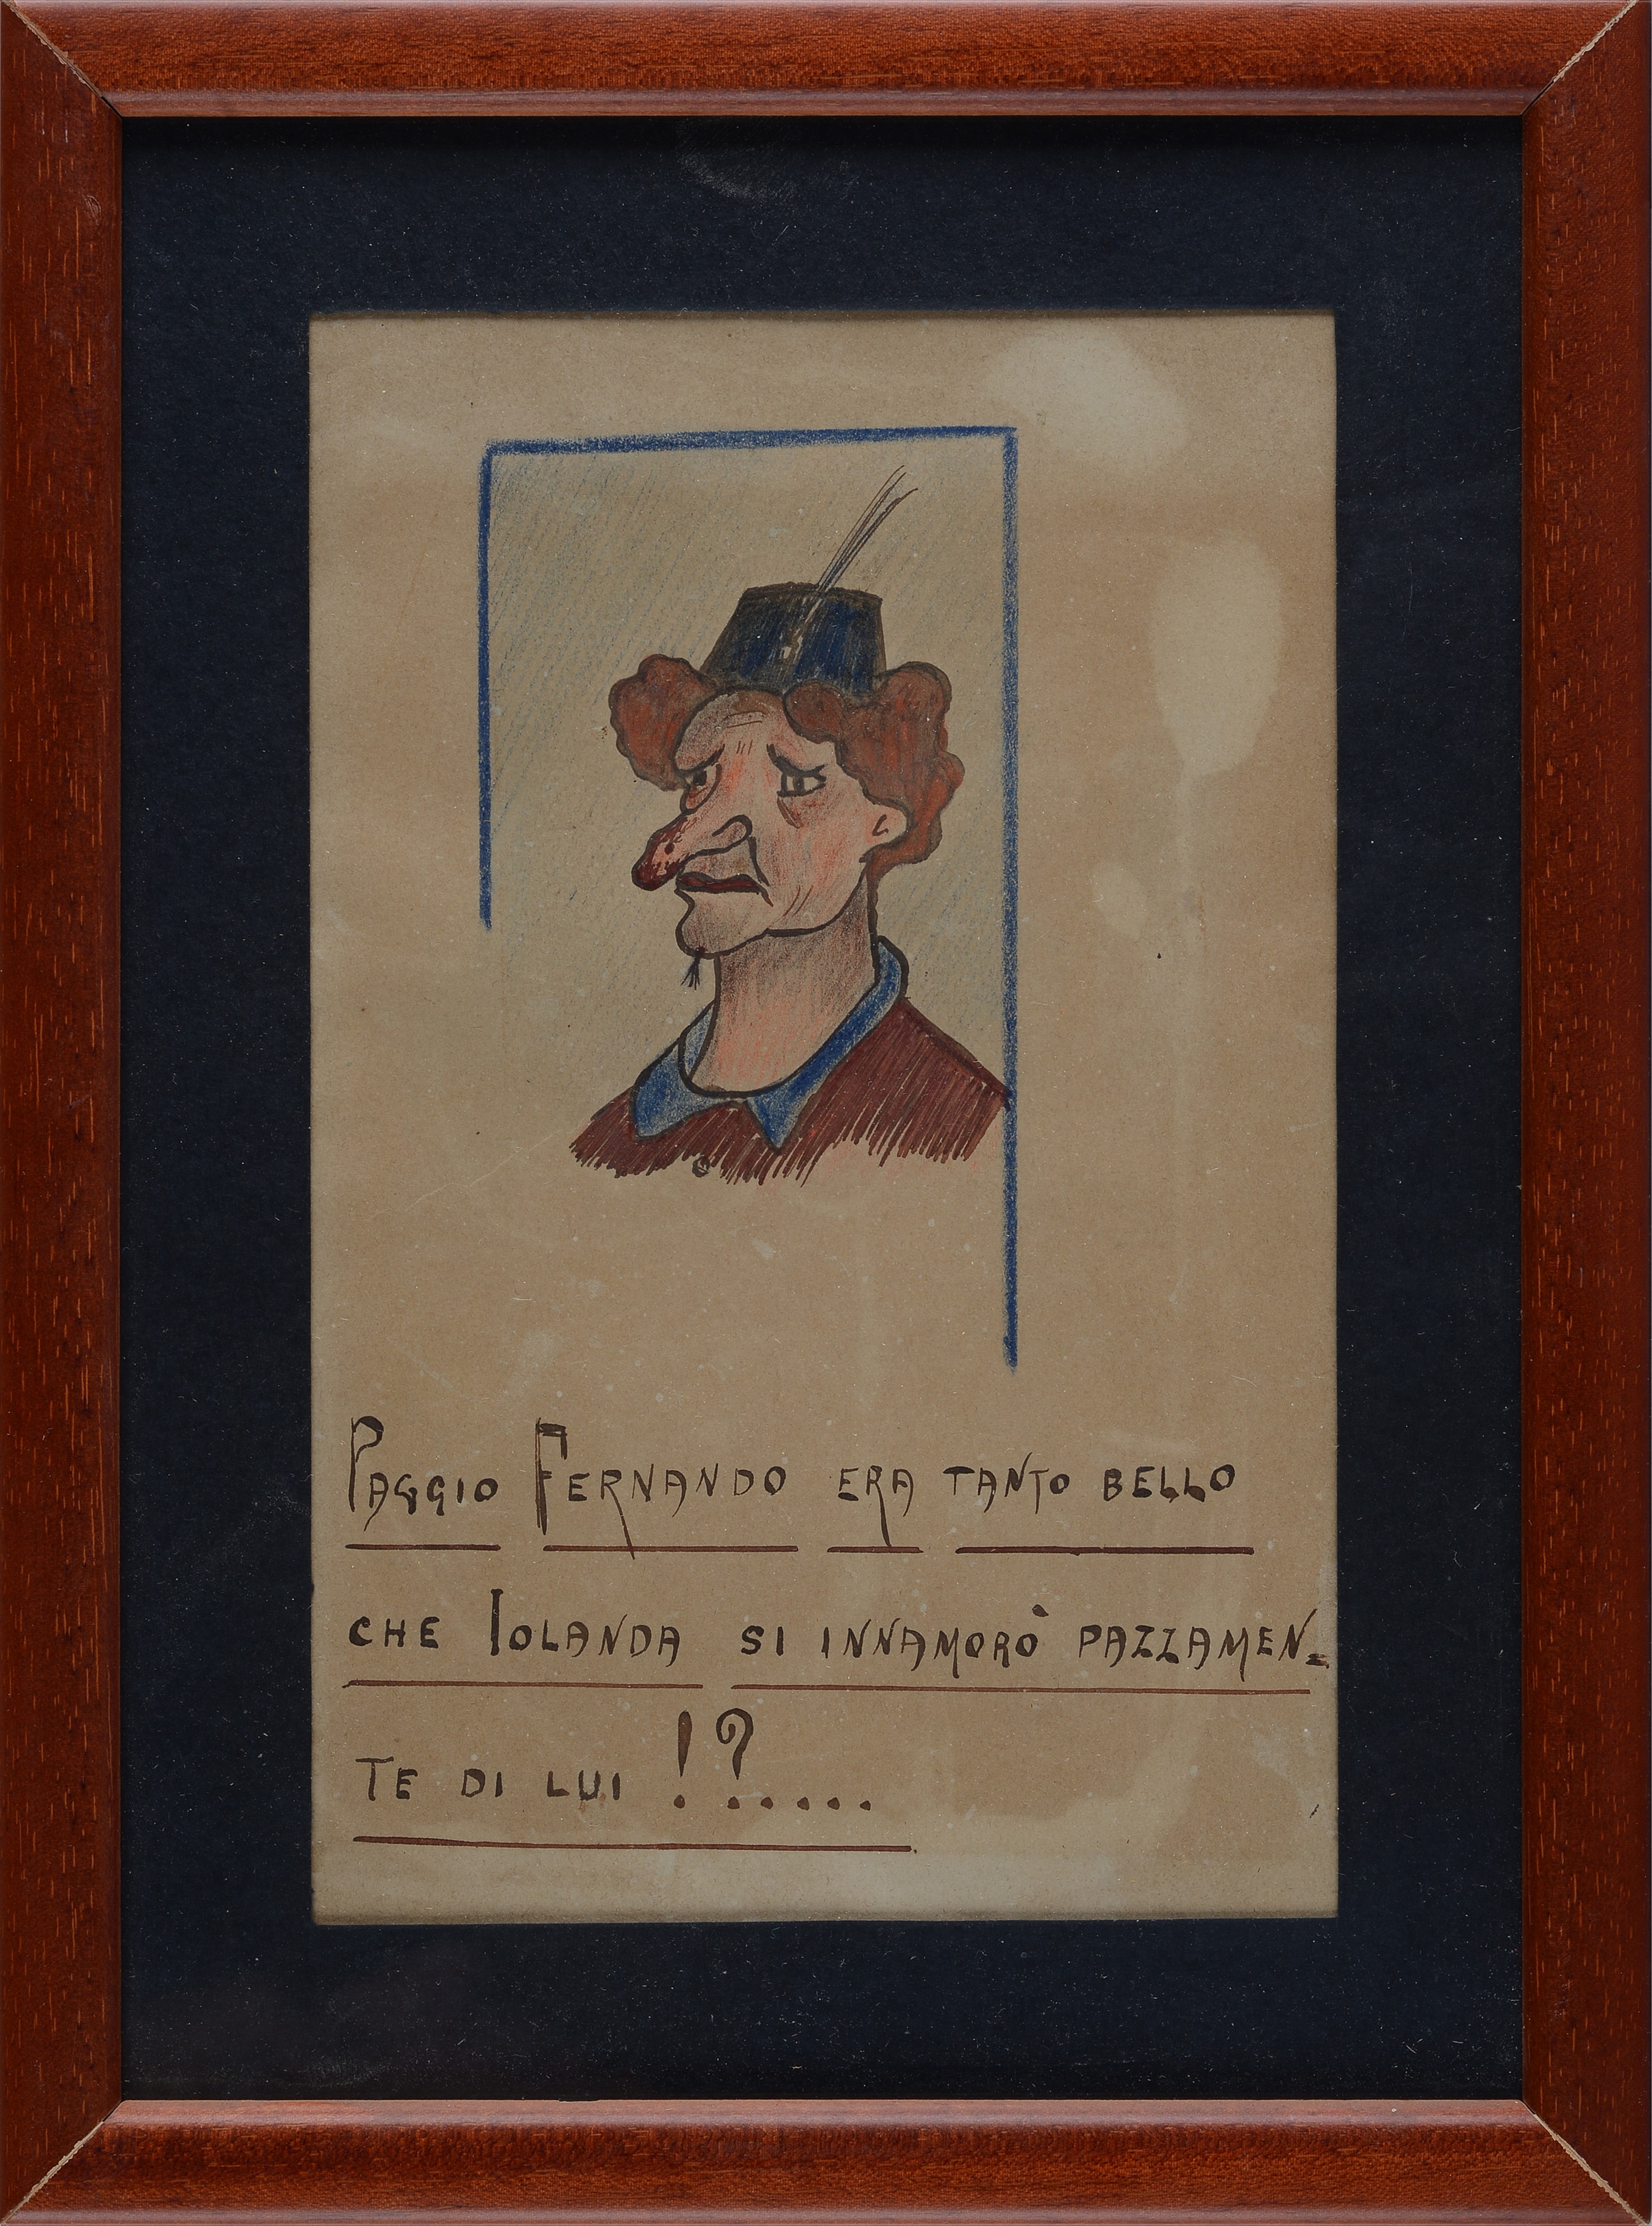 Paggio Fernando era tanto bello
che Iolanda si innamorò pazzamen=
te di lui !?.....